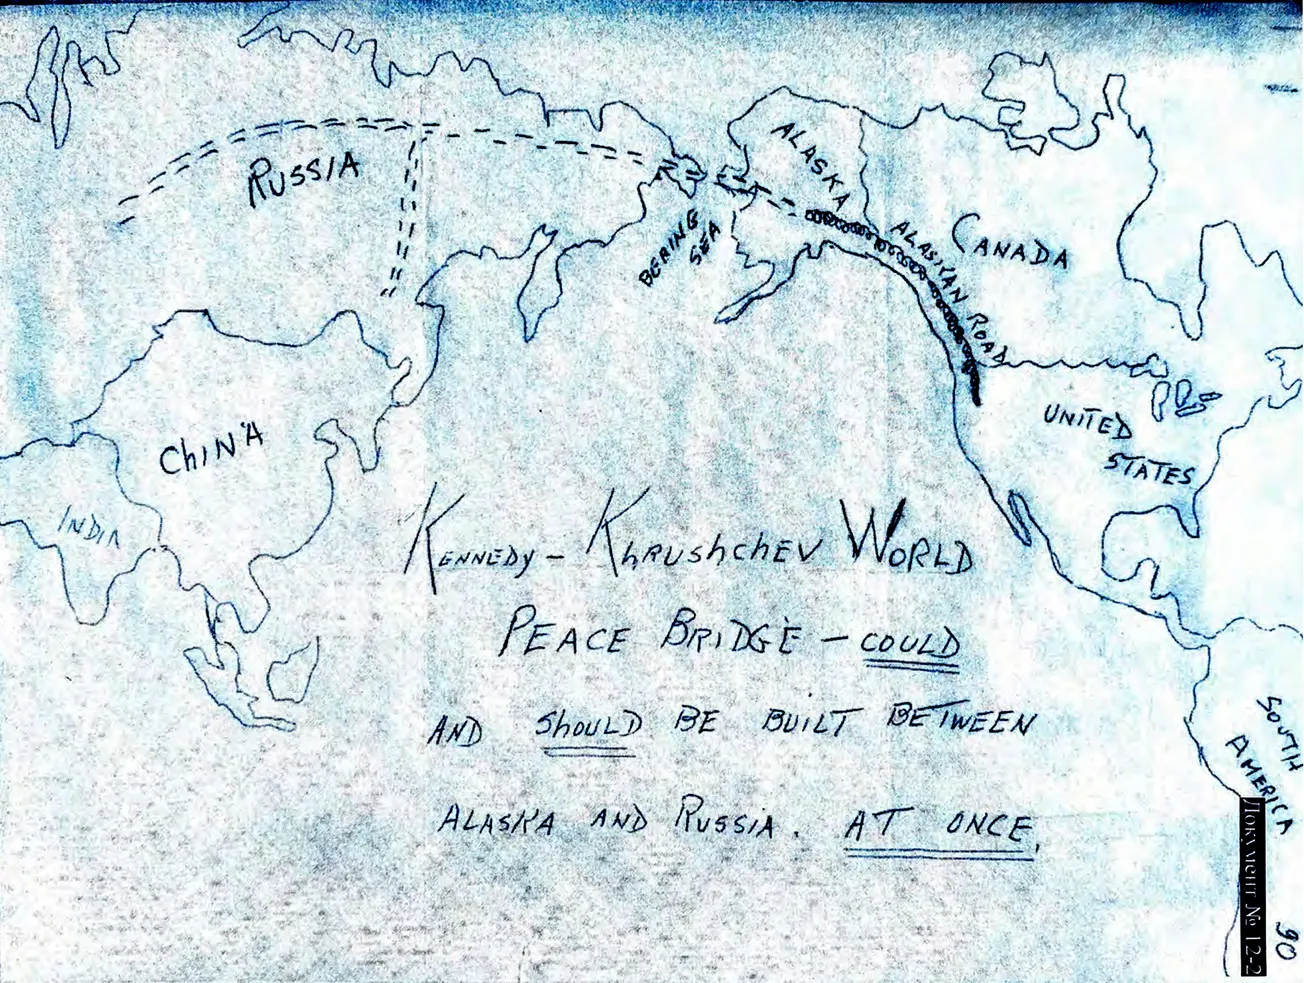 RUSSIA
ALASKA
BERING
SEA
ALASKAN ROAD
CANADA
CHINA
INDIA
UNITED
STATES
KENNEDY - KHRUSHCHEV WORLD
PEACE BRIDGE - COULD
AND SHOULD BE BUILT BETWEEN
ALASKA AND RUSSIA. AT ONCE.
SOUTH
AMERICA
Документ № 12-2
90